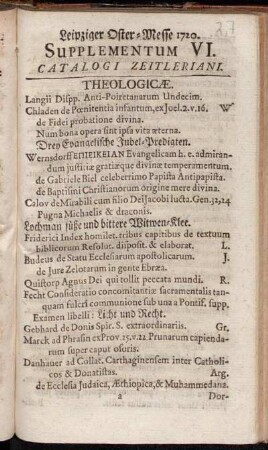 Leipziger Oster-Messe 1720.
SUPPLEMENTUM VI.
CATALOGI ZEITLERIANI.
THEOLOGICÆ.
Langii Dispp. Anti-Poiretanarum Undecim.
Chladen de Pœnitentia infantum, ex Joel. 2. v. 16. W
de Fidei probatione divina.
Num bona opera sint ipsa vita æterna.
Drey Evangelische Jubel-Predigten.
Wernsdorff ΕΠΙΕΙΚΕΙΑΝ Evangelicam h. e. admiran-
dum justitiæ gratiæque divinæ temperamentum.
de Gabriele Biel celeberrimo Papista Antipapista.
de Baptismi Christianorum origine mere divina.
Calov de Mirabili cum filio Dei Jacobi lucta. Gen. 32, 24
Pugna Michaelis & draconis.
Lochman süsse und bittere Witwen-Klee.
Friderici Index homilet. tribus capitibus de textuum
biblicorum Resolut. disposit. & elaborat. L.
Budeus de Statu Ecclesiarum apostolicarum. J.
de Jure Zelotarum in gente Ebræa.
Quistorp Agnus Dei qui tollit peccata mundi. R.
Fecht Consideratio concomitantiæ sacramentalis tan-
quam fulcri communione sub una a Pontif. supp.
Examen libelli: Licht und Recht.
Gebhard de Donis Spir. S. extraordinariis. Gr.
Marck ad Phrasin ex Prov. 25. v. 22 Prunarum capienda-
rum super caput osoris.
Danhauer ad Collat. Carthaginensem inter Catholi-
cos & Donatistas. Arg.
de Ecclesia Judaica, Æthiopica, & Muhammedana.
a Dor-